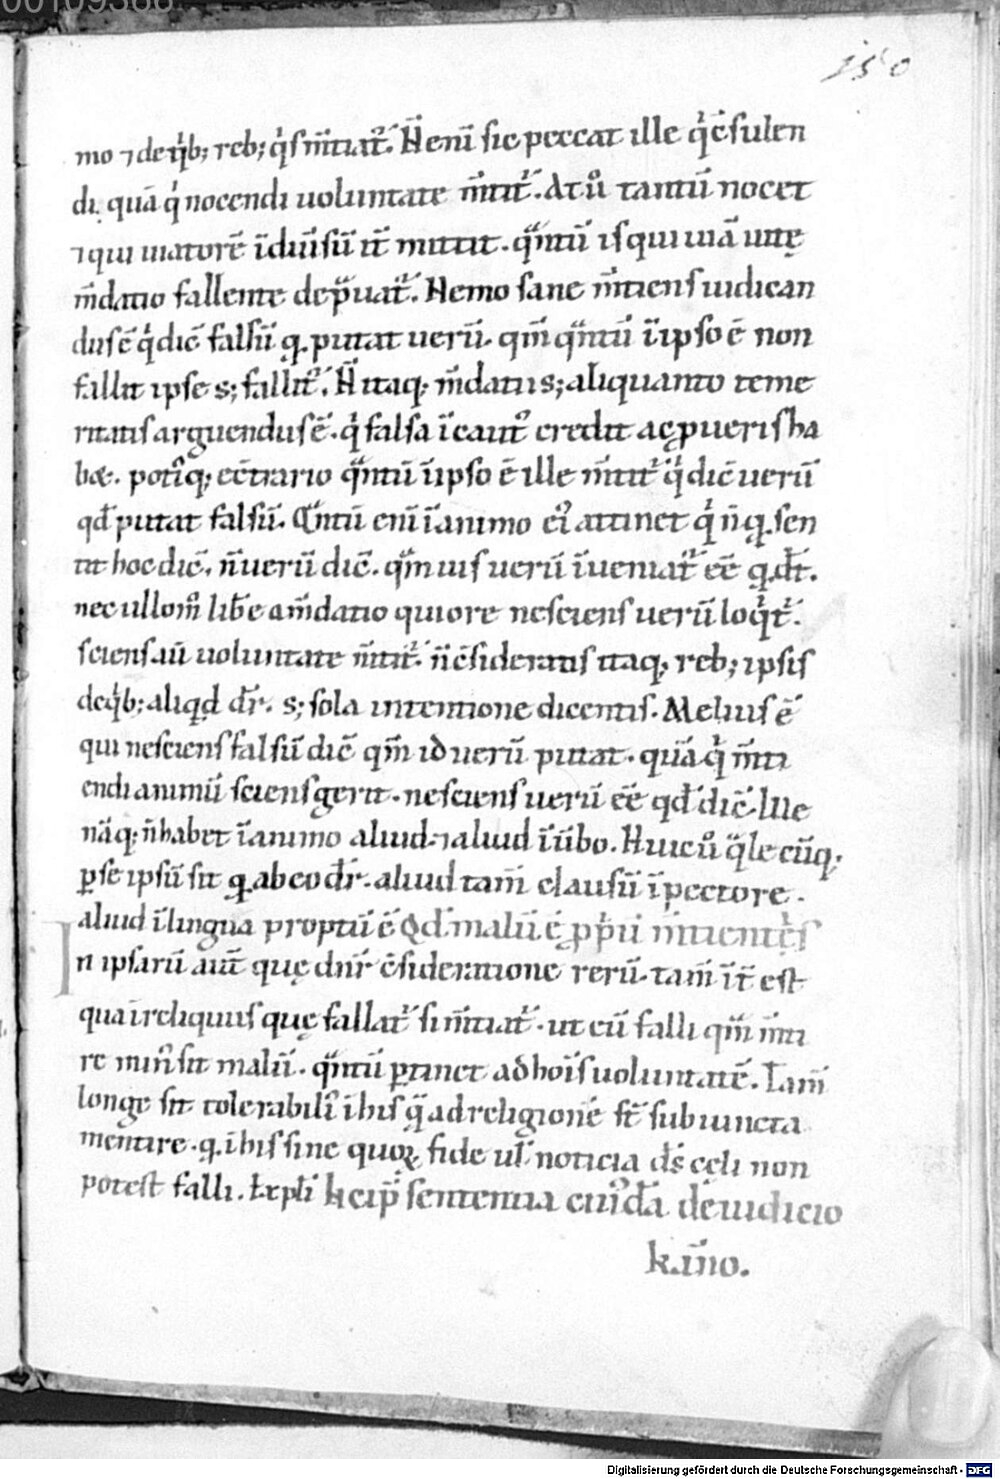 00109388
150
mo ⁊ de qͥb; reb; qͥs m̄tiat᷑. N̄ enī sic peccat ille qͥ c̄sulen
di. quā qͥ nocendi uoluntate m̄tit᷑. At ů tantū nocet
⁊ qui uiatorē ī diuīsū it̄ mittit. qͣntū is qui uiā uitę
m̄datio fallente dep̄uat᷑. Nemo sane m̄tiens iudican
dus ē qͥ dic̄ falsū q. putat uerū. qm̄ qͣntū ī ipso ē non
fallit ipse s; fallit᷑. N̄ itaq; m̄datii s; aliquanto teme
ritatis arguendus ē. qͥ falsa īcaut᷑ credit ac ꝑ ueris ha
bæ. potiq; ec̄trario qͣntū ī ipso ē ille m̄tit᷑ qͥ dic̄ uerū
qd̄ putat falsū. Qͣntū enī ī animo ei᷑ attinet qͥ n̄ q. sen
tit hoc dic̄. n̄ uerū dic̄. qͣmuis uerū īueniat᷑ eē q. dr̄.
nec ullom̊ lib̄ e a m̄datio qui ore nesciens uerū loqͥt᷑.
sciens aū uoluntate m̄tit᷑. n̄ c̄sideratis itaq; reb; ipsis
de qͥb; aliqd dr̄. s; sola intentione dicentis. Melius ē
qui nesciens falsū dic̄ qm̄ id uerū putat. quā qͥ m̄ti
endi animū sciens gerit. nesciens uerū eē qd̄ dic̄. Ille
nāq; n̄ habet ī animo aliud. ⁊ aliud ī ūbo. Huic ů qͣlecūq;
ꝑ se ipsū sit q. ab eo dr̄. aliud tam̄ clausū ī pectore.
aliud ī lingua proptū ē Qd̄ malū ē ꝓpͥū m̄tientis
In ipsarū aūt quę dn̄r c̄sideratione rerū. tam̄ īt̄est
qua ī re liquuis quę fallat᷑ si m̄tiat᷑. ut cū falli qm̄ m̄ti
re min᷑ sit malū. qͣntū ꝑtinet ad hoīs uoluntatē. Tam̄
longe sit tolerabili᷑ ī his qͣ a religione st̄ subiuncta
mentire. q. ī his sine quoꝝ fide ul̄ noticia dī cęli non
potest falli. Expli᷑ kcip̄ sententia cui᷑dā de iudicio
k.ino.
Digitalisierung gefördert durch die Deutsche Forschungsgemeinschaft - DFG